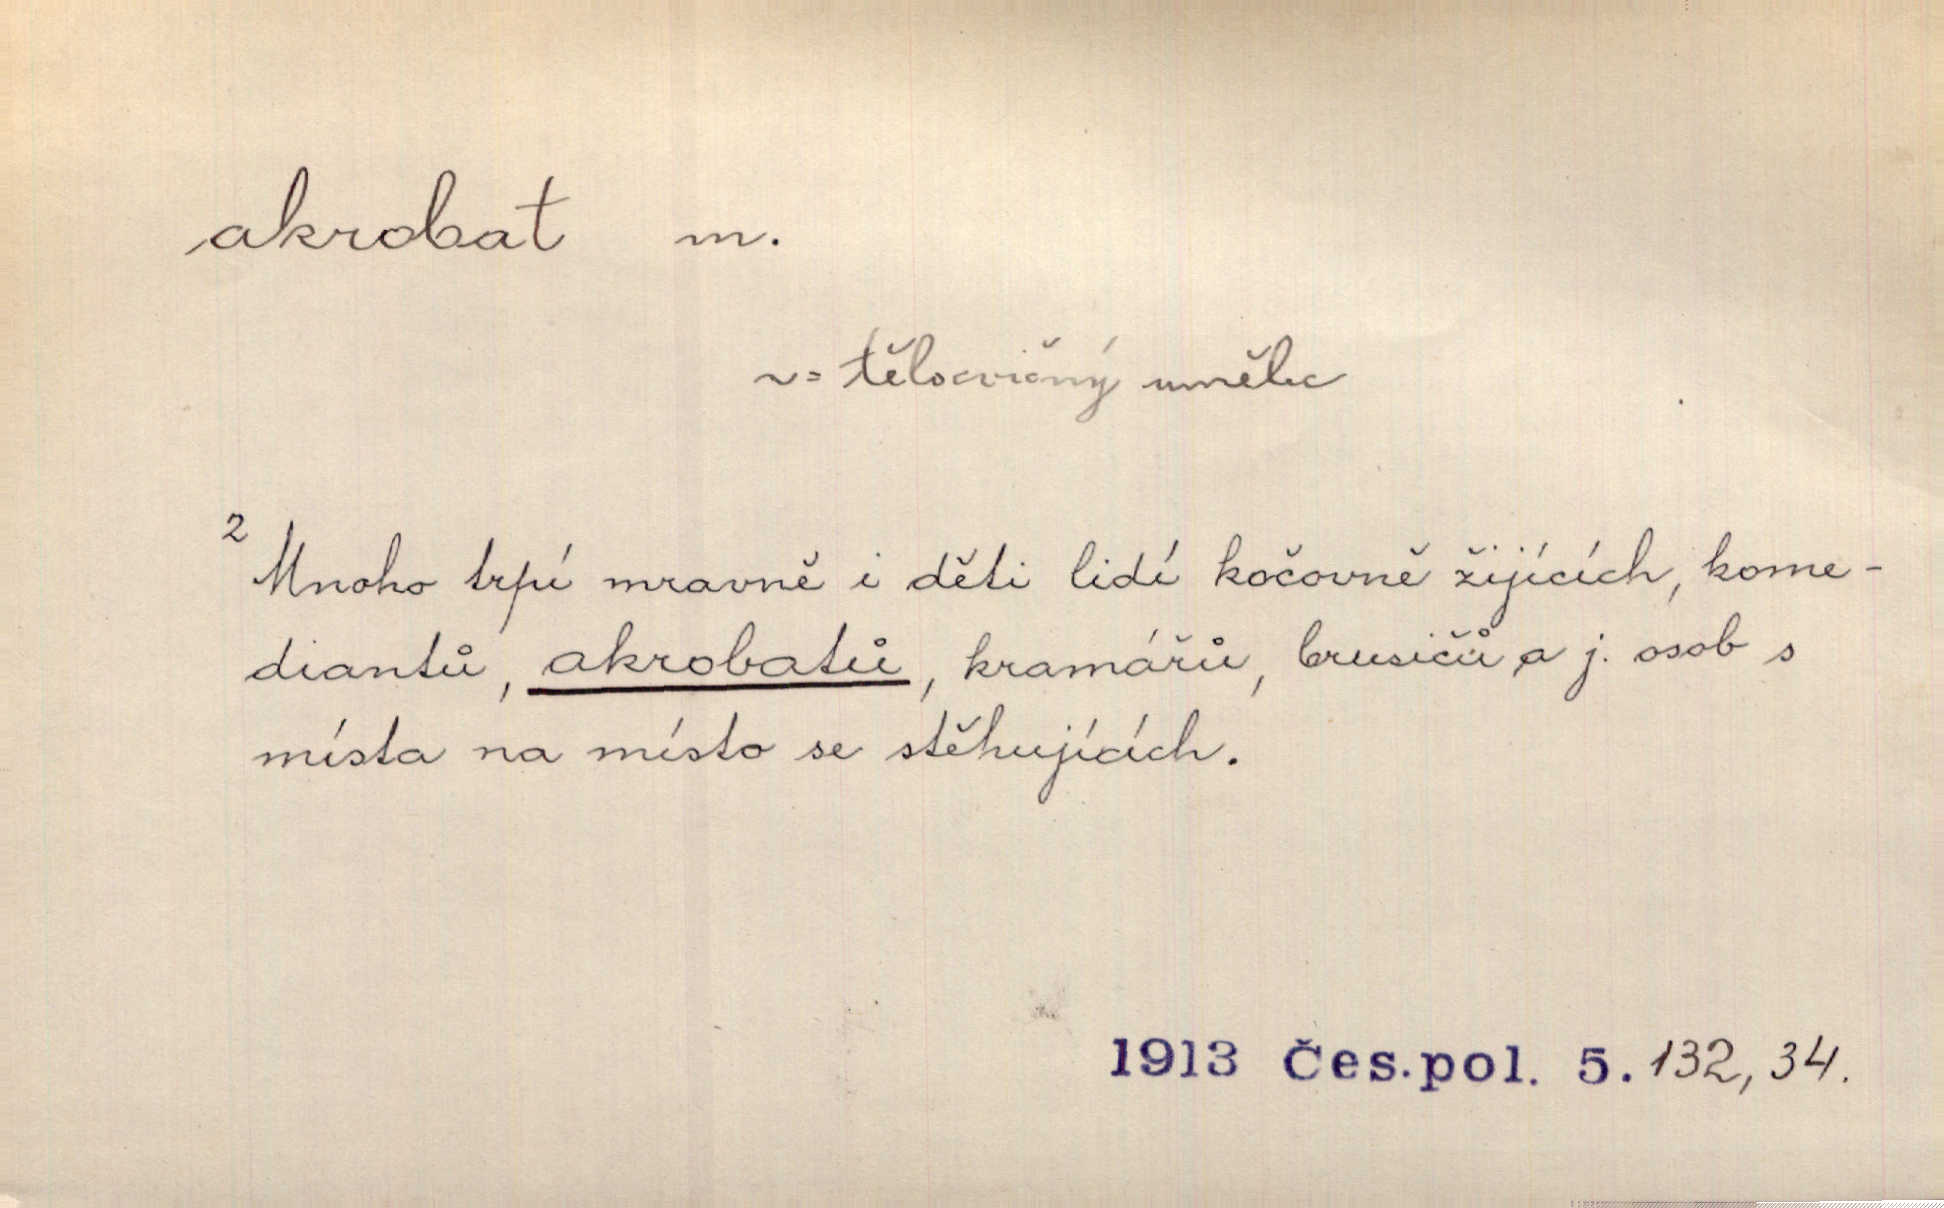 akrobat m.
v = tělocvičný umělec
² Mnoho trpí mravně i děti lidí kočovně žijících, kome-
diantů, akrobatů, kramářů, brusičů a j. osob s
místa na místo se stěhujících.
1913 Čes.pol. 5. 132, 34.